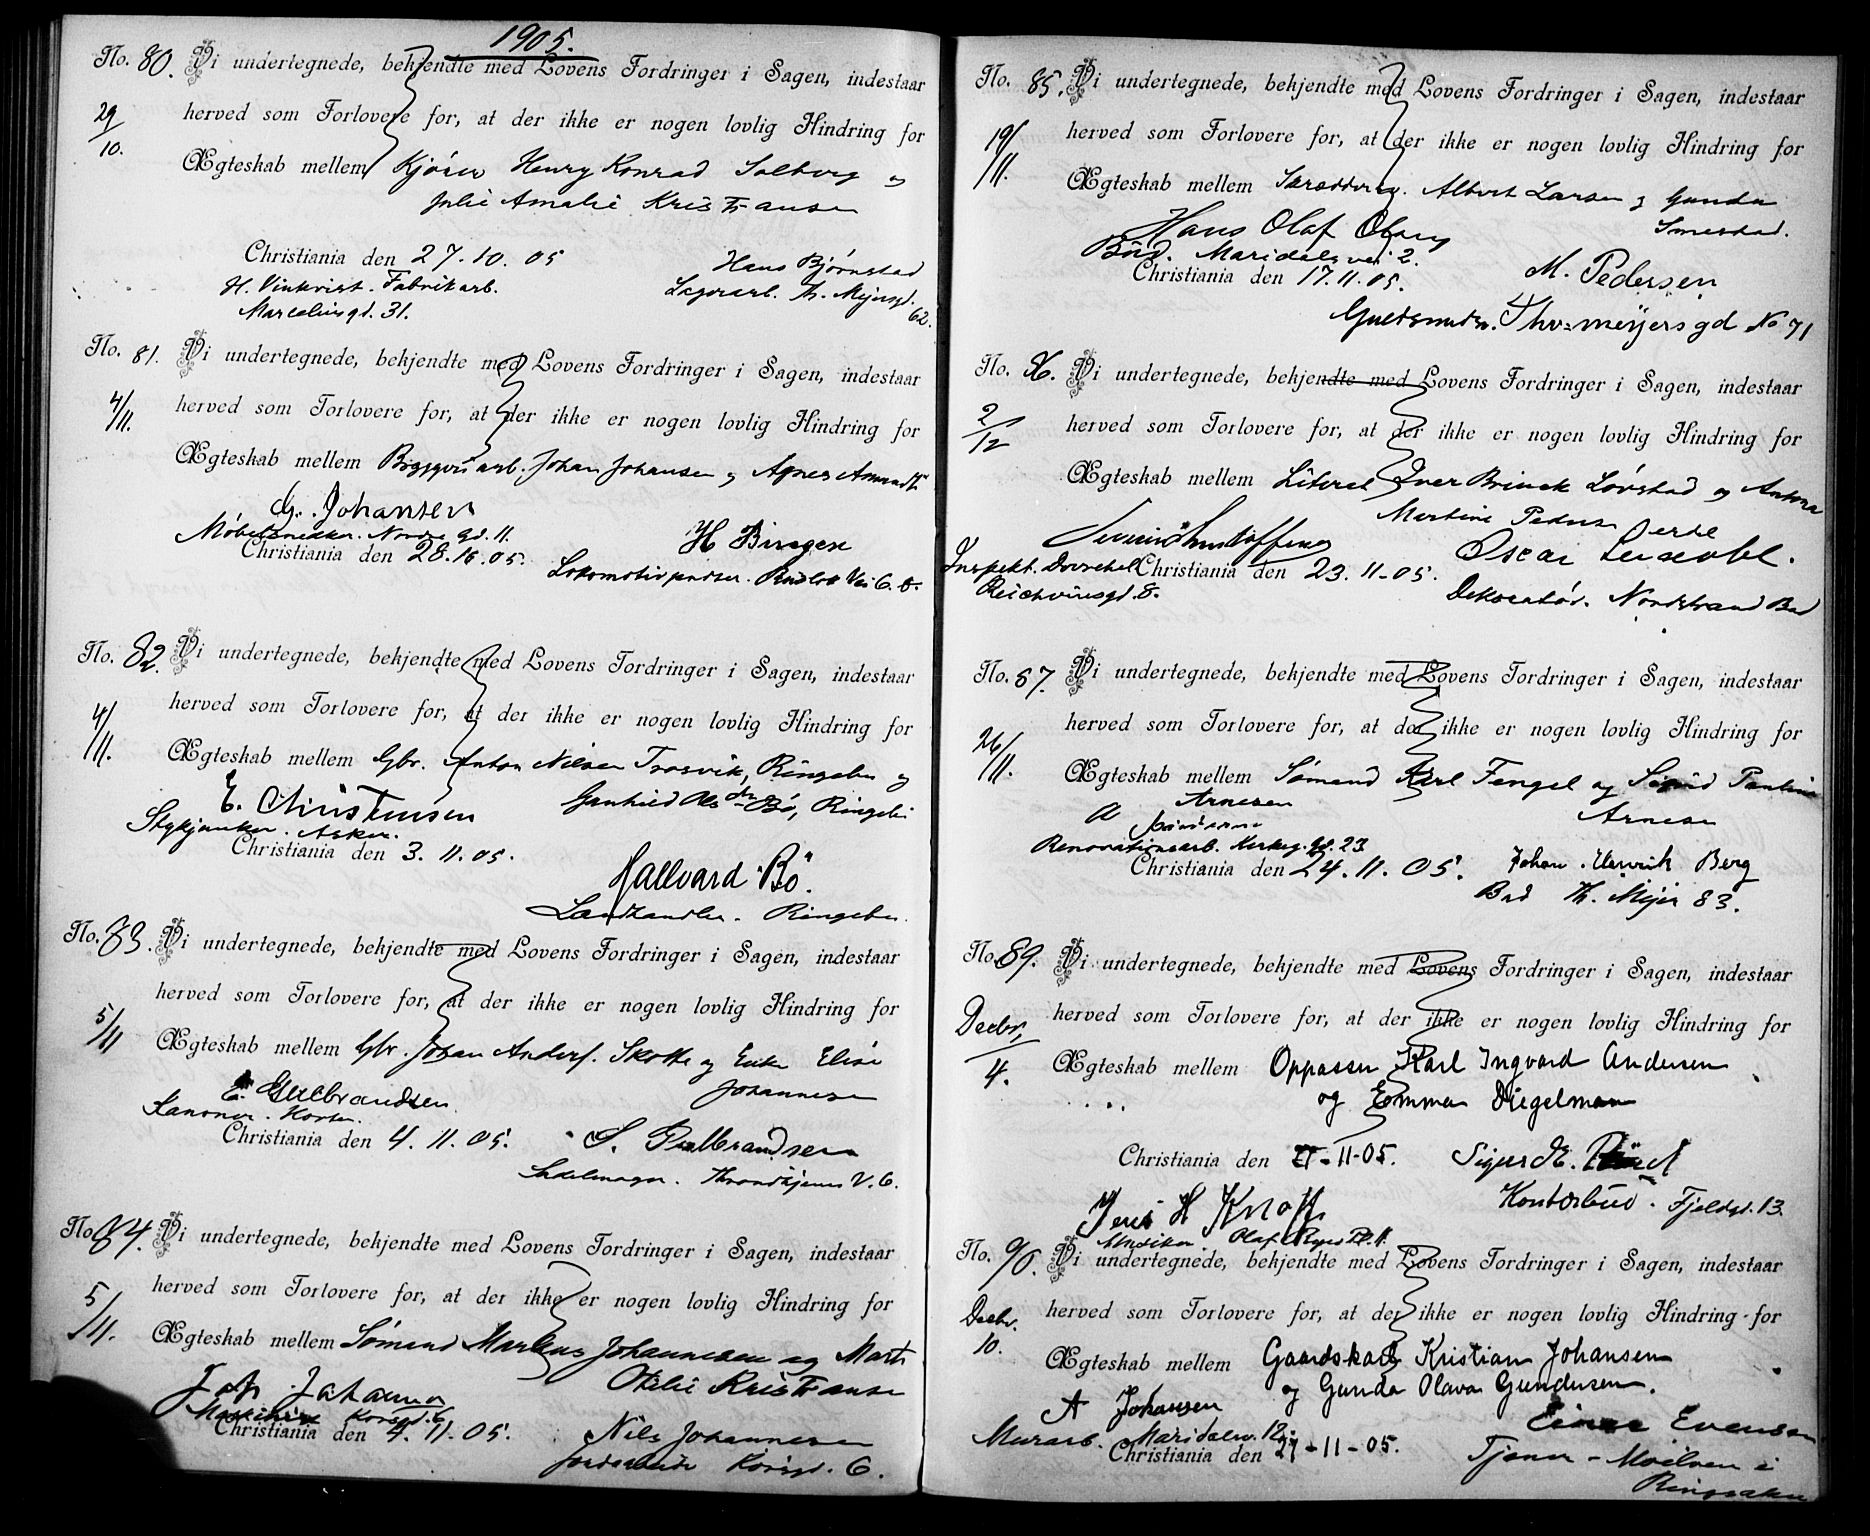 1905.
No. 80. Vi undertegnede, bekjendte med Lovens Fordringer i Sagen, indestaar
29/10. herved som Forlovere for, at der ikke er nogen lovlig Hindring for
Ægteskab mellem Kjører Henry Konrad Solberg og
Julie Amalie Kristiansen
Christiania den 27.10.05
Hans Bjørnstad
H. Vinkvist. Fabrikarb.
Lagerarb. Th. Mejersgd. 62.
Marcelinsgd. 31.
No. 81. Vi undertegnede, bekjendte med Lovens Fordringer i Sagen, indestaar
4/11. herved som Forlovere for, at der ikke er nogen lovlig Hindring for
Ægteskab mellem Bryggeriarb. Johan Johansen og Agnes Amundt
G. Johansen
Møbelsnedker. Nordre gd. 11.
H Birager
Christiania den 28.10.05.
Lokomotivpudser.
No. 82. Vi undertegnede, bekjendte med Lovens Fordringer i Sagen, indestaar
4/11. herved som Forlovere for, at der ikke er nogen lovlig Hindring for
Ægteskab mellem Gbr. Anton Nilsen Trosvik, Ringebu og
Gunhild Olsdtr Bø, Ringebu
E. Christensen
Stykjunker. Asker.
Christiania den 3.11.05.
Hallvard Bö.
Landhandler. Ringebu.
No. 83. Vi undertegnede, bekjendte med Lovens Fordringer i Sagen, indestaar
5/11 herved som Forlovere for, at der ikke er nogen lovlig Hindring for
Ægteskab mellem Gbr. Johan Anders. Skotte og Enke Elise
Johannesen
E. Gulbrandsen
Kanoner. Horten.
Christiania den 4.11.05.
S. Gulbrandsen
Sadelmager. Throndhjems V. 6.
No. 84. Vi undertegnede, bekjendte med Lovens Fordringer i Sagen, indestaar
5/11. herved som Forlovere for, at der ikke er nogen lovlig Hindring for
Ægteskab mellem Sømand Markus Johannesen og Marth
Otilie Kristiansen
Korsgd. 6
Christiania den 4.11.05.
Nils Johannesen
Jordarbeider Korsgd. 6.
No. 85. Vi undertegnede, bekjendte med Lovens Fordringer i Sagen, indestaar
19/11. herved som Forlovere for, at der ikke er nogen lovlig Hindring for
Ægteskab mellem Skræddersv. Albert Larsen og Gunda
Smestad.
Hans Olaf Olsen
Bud. Maridalsvei 2.
Christiania den 17.11.05.
M. Pedersen
Guldsmedsv. Thv. meyjers gd No 71
No. 86. Vi undertegnede, bekjendte med Lovens Fordringer i Sagen, indestaar
2/12 herved som Forlovere for, at der ikke er nogen lovlig Hindring for
Ægteskab mellem Literat Iver Brinck Løvstad og Antora
Martine Pedersen
Inspekt.
Christiania den 23.11-05.
Oscar
Reichweinsgd. 8.
Dekoratør. Nordstrand Bad
No. 87. Vi undertegnede, bekjendte med Lovens Fordringer i Sagen, indestaar
26/11. herved som Forlovere for, at der ikke er nogen lovlig Hindring for
Ægteskab mellem Sømand Karl Fengel og Sigrid Pauline
Arnesen
A Arnesen
Renovationsarb. Herslebs gd. 23
Christiania den 24.11.05.
Johan Henrik Berg
Bud Th. Mejer 83.
No. 89. Vi undertegnede, bekjendte med Lovens Fordringer i Sagen, indestaar
Decbr. 4. herved som Forlovere for, at der ikke er nogen lovlig Hindring for
Ægteskab mellem Oppasser Karl Ingvard Andersen
og Emma Diegelman
Christiania den 27-11-05.
Sigurd E.
Kontorbud. Fjeldgd. 13.
Jens H Knoff
Musiker Olaf Ryes Pl. 11.
No. 90. Vi undertegnede, bekjendte med Lovens Fordringer i Sagen, indestaar
Decbr. 10. herved som Forlovere for, at der ikke er nogen lovlig Hindring for
Ægteskab mellem Gaardskarl Kristian Johansen
og Gunda Olava Gundersen.
A Johansen
Murarb. Maridalsv. 12.
Christiania den 27-11-05.
Einar Evensen
Tjener - Moelven i
Ringsaker